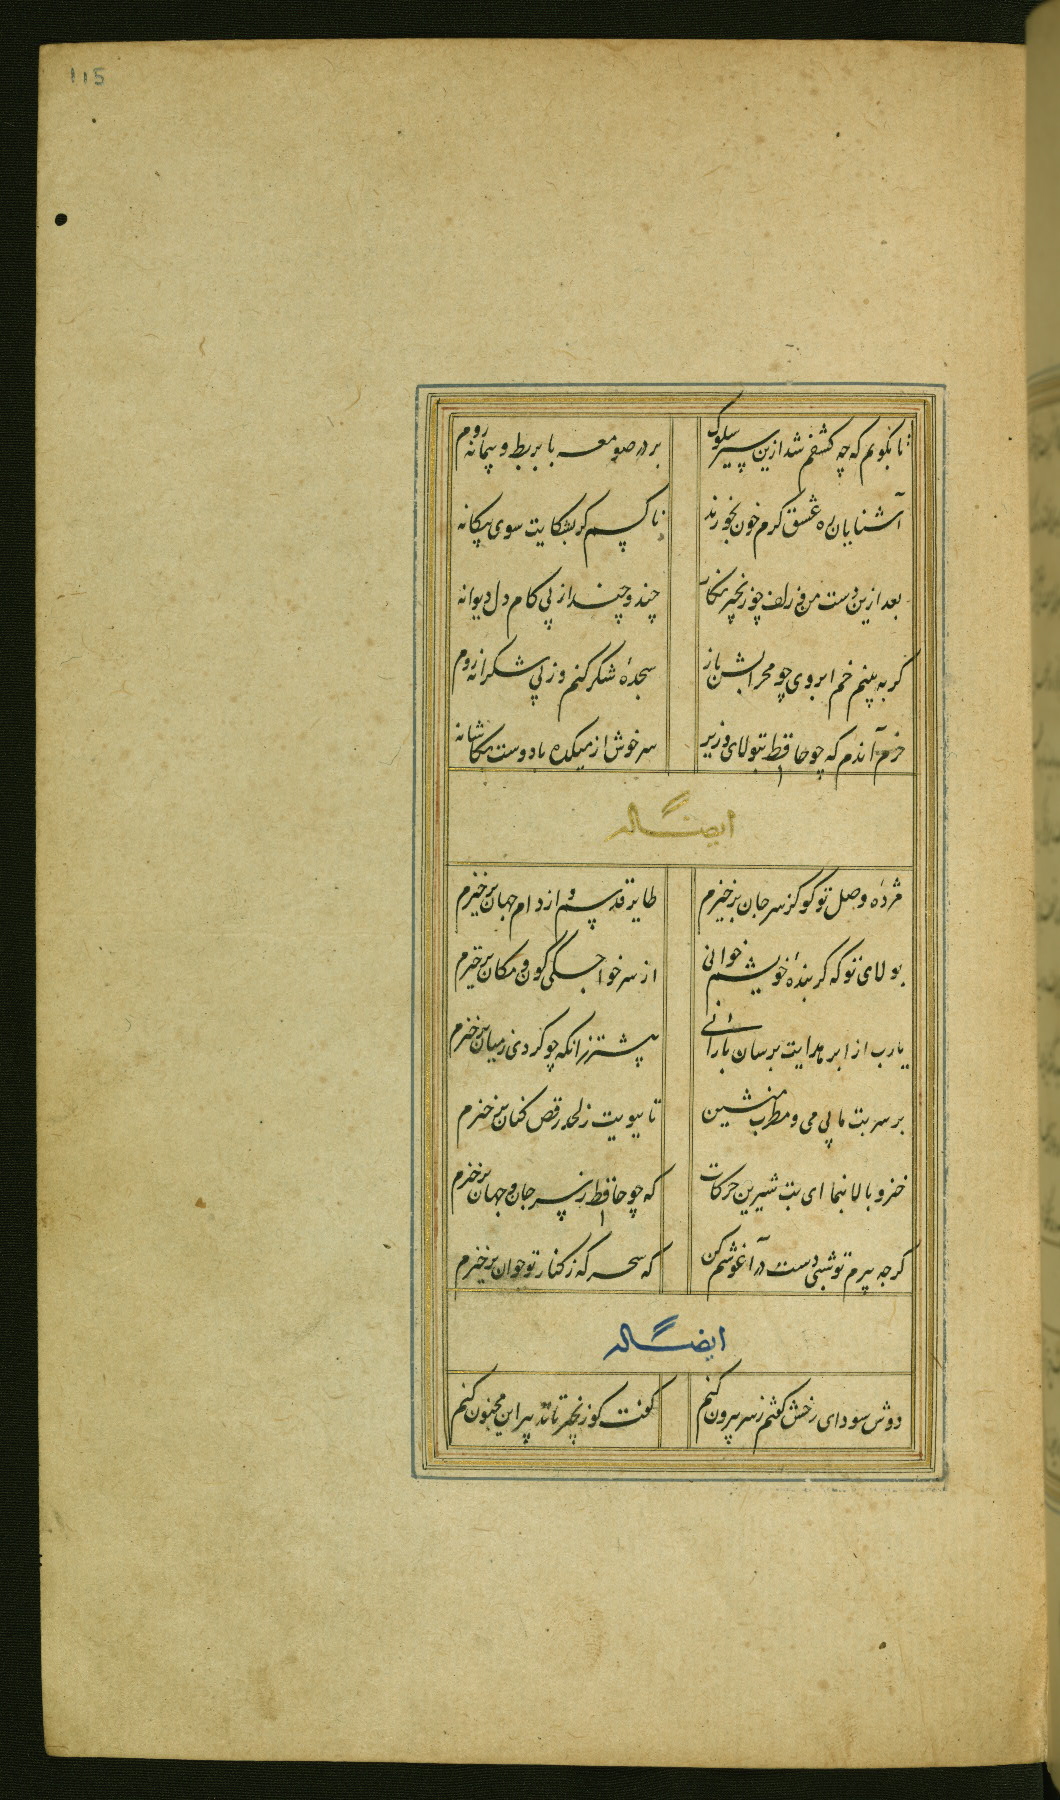 115
تا بگویم که چه کشفم شد ازین سیر سلوک بر در صومعه با بربط و پیمانه روم
آشنایان ره عشق کرم خون بخورند ناکسم کر بشکایت سوی بیکانه
بعد ازین دست من و زلف چو زنجیر نکار چند و چند از پی کام دل دیوانه
کر به بینم خم ابروی چو محرابش باز سجدهٔ شکر کنم وز پی شکرانه روم
خرم آندم که چو حافظ بتولای وزیر سرخوش از میکده با دوست بکاشانه
ایضاً له
مژدهٔ وصل تو کو کز سر جان برخیزم طایر قدسم و از دام جهان برخیزم
بولای تو که کر بندهٔ خویشم خوانی از سر خواجگی کون و مکان برخیزم
یارب از ابر هدایت برسان بارانی پیشتر زانکه چو کردی ز میان برخیزم
بر سر تربت ما پی می و مطرب منشین تا ببویت ز لحد رقص کنان برخیزم
خیز و بالا بنما ای بت شیرین حرکات که چو حافظ ز سر جان و جهان برخیزم
کرچه پیرم تو شبی دست در آغوشم کن که سحرکه ز کنار تو جوان برخیزم
ایضاً له
دوش سودای رخش کفتم ز سر بیرون کنم کفت کو زنجیر تا تدبیر این مجنون کنم